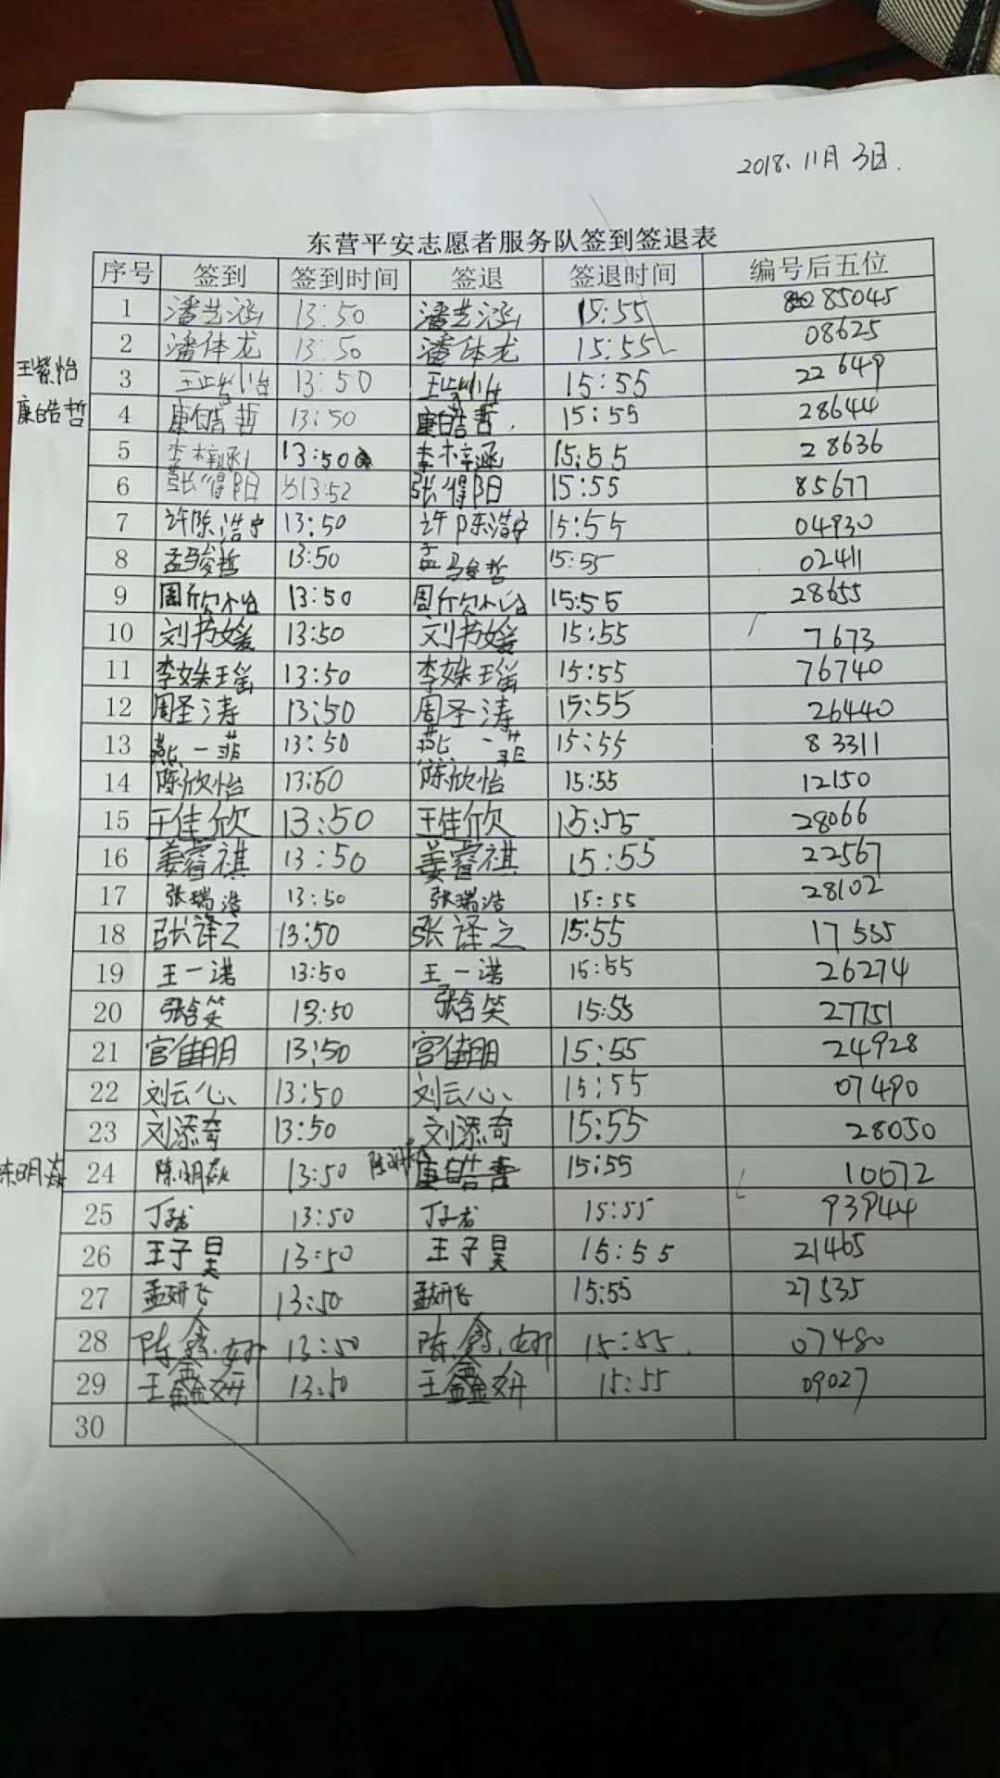 2018.11月3日.
东营平安志愿者服务队签到签退表
序号 签到 签到时间 签退 签退时间 编号后五位
1 潘艺涵 13:50 潘艺涵 15:55 85045
2 潘体龙 13:50 潘体龙 15:55 08625
王紫怡
3 王紫怡 13:50 王紫怡 15:55 22649
康皓哲
4 康皓哲 13:50 康皓哲. 15:55 28644
5 李梓涵 13:50 李梓涵 15:55 28636
6 张得阳 13:52 张得阳 15:55 85677
7 许陈浩宁 13:50 许陈浩宁 15:55 04930
8 孟骏哲 13:50 孟骏哲 15:55 02411
9 周欣怡 13:50 周欣怡 15:55 28655
10 刘书媛 13:50 刘书媛 15:55 7673
11 李姝瑶 13:50 李姝瑶 15:55 76740
12 周圣涛 13:50 周圣涛 15:55 26440
13 燕一菲 13:50 燕一菲 15:55 83311
14 陈欣怡 13:50 陈欣怡 15:55 12150
15 王佳欣 13:50 王佳欣 15:55 28066
16 姜睿祺 13:50 姜睿祺 15:55 22567
17 张瑞浩 13:50 张瑞浩 15:55 28102
18 张译之 13:50 张译之 15:55 17555
19 王一诺 13:50 王一诺 15:55 26274
20 张含笑 13:50 张含笑 15:55 27751
21 宫佳朋 13:50 宫佳朋 15:55 24928
22 刘云心 13:50 刘云心 15:55 07490
23 刘添奇 13:50 刘添奇 15:55 28050
陈明焱
24 陈明焱 13:50 陈明焱 康皓哲 15:55 10072
25 丁子龙 13:50 丁子龙 15:55 93944
26 王子昊 13:50 王子昊 15:55 21465
27 孟妍飞 13:50 孟妍飞 15:55 27535
28 陈鑫娜 13:50 陈鑫娜 15:55. 07480
29 王鑫妍 13:50 王鑫妍 15:55 09027
30